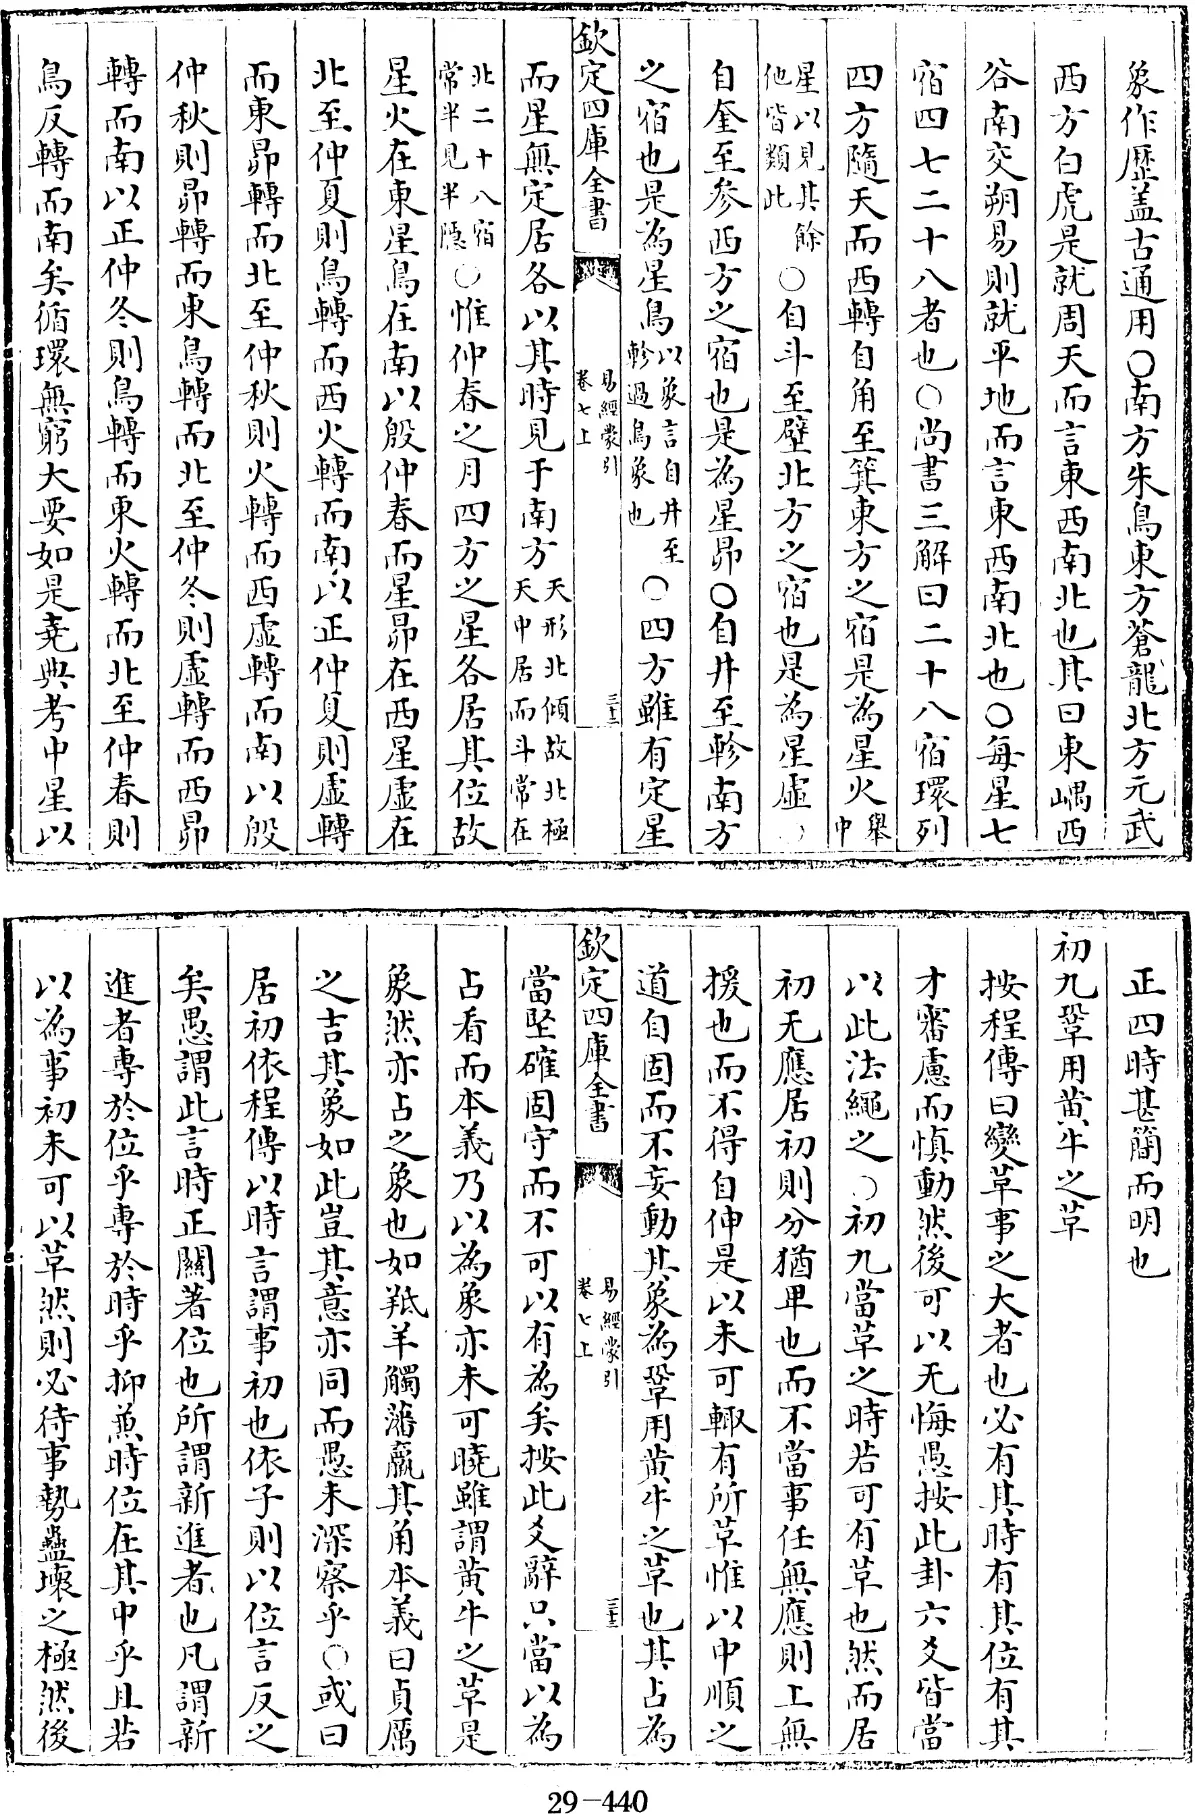 象作歴盖古通用○南方朱鳥東方蒼龍北方元武
西方白虎是就周天而言東西南北也其曰東嵎西
谷南交朔易則就平地而言東西南北也○每星七
宿四七二十八者也○尚書三解曰二十八宿環列
四方隨天而西轉自角至箕東方之宿是為星火舉中
星以見其餘他皆類此○自斗至壁北方之宿也是為星虛○
自奎至參西方之宿也是為星昴○自井至軫南方
之宿也是為星鳥以象言自井至軫過鳥象也○四方雖有定星
欽定四庫全書
易經蒙引
卷七上
三十二
而星無定居各以其時見于南方天形北傾故北極天中居而斗常在
北二十八宿常半見半隱○惟仲春之月四方之星各居其位故
星火在東星鳥在南以殷仲春而星昴在西星虛在
北至仲夏則鳥轉而西火轉而南以正仲夏則虛轉
而東昴轉而北至仲秋則火轉而西虛轉而南以殷
仲秋則昴轉而東鳥轉而北至仲冬則虛轉而西昴
轉而南以正仲冬則鳥轉而東火轉而北至仲春則
鳥反轉而南矣循環無窮大要如是堯典考中星以
正四時甚簡而明也
初九鞏用黄牛之革
按程傳曰變革事之大者也必有其時有其位有其
才審慮而慎動然後可以无悔愚按此卦六爻皆當
以此法繩之○初九當革之時若可有革也然而居
初无應居初則分猶卑也而不當事任無應則上無
援也而不得自伸是以未可輒有所革惟以中順之
道自固而不妄動其象為鞏用黄牛之革也其占為
欽定四庫全書
易經蒙引
卷七上
三十三
當堅確固守而不可以有為矣按此爻辭只當以為
占看而本義乃以為象亦未可曉雖謂黄牛之革是
象然亦占之象也如羝羊觸藩羸其角本義曰貞厲
之吉其象如此豈其意亦同而愚未深察乎○或曰
居初依程傳以時言謂事初也依子則以位言反之
矣愚謂此言時正關著位也所謂新進者也凡謂新
進者專於位乎專於時乎抑兼時位在其中乎且若
以為事初未可以革然則必待事勢蠱壞之極然後
29-440